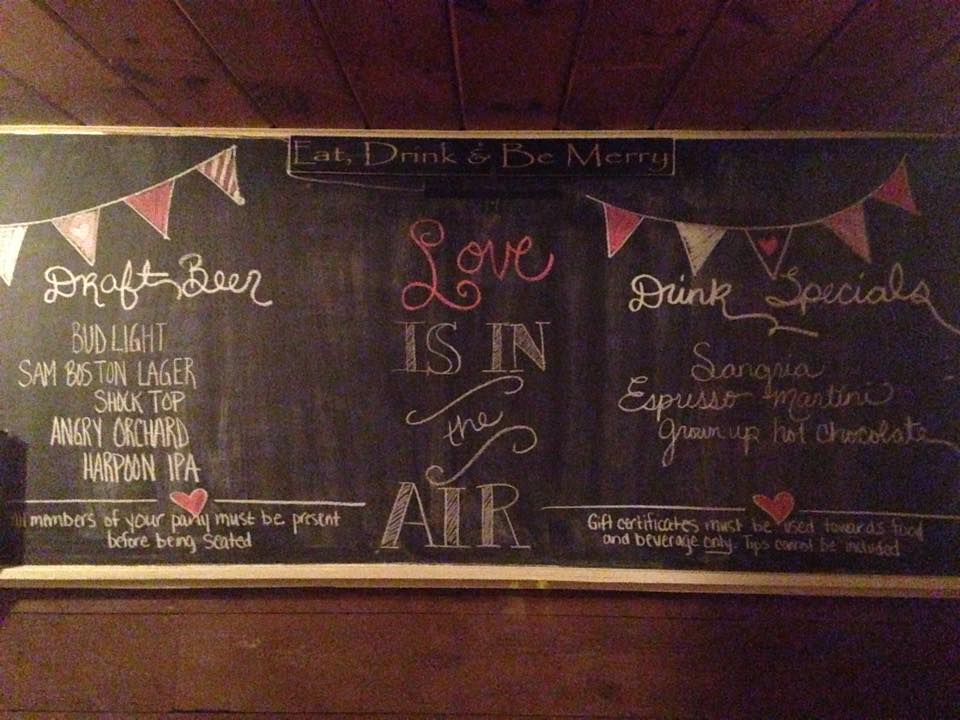 Eat, Drink & Be Merry
Draft Beer
BUD LIGHT
SAM BOSTON LAGER
SHOCK TOP
ANGRY ORCHARD
HARPOON IPA
members of your party must be present
before being seated
Love
IS IN
the
AIR
Drink Specials
Sangria
Espresso Martini
grown up hot chocolate
Gift certificates must be used towards food
and beverage only. Tips cannot be included